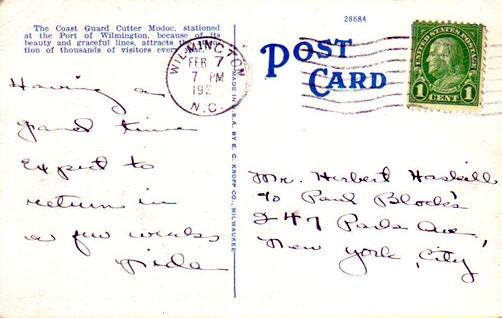 The Coast Guard Cutter Modoc, stationed
at the Port of Wilmington, because of its
beauty and graceful lines, attracts the
tion of thousands of visitors every
28684
POST
CARD
WILMINGTON
FEB 7
7 PM
193
N.C.
UNITED STATES POSTAGE
1 CENT 1
MADE IN U.S.A. BY E. C. KROPP CO., MILWAUKEE
Having a
grand time
Expect to
return in
a few weeks
Mr. Herbert Haskell
c/o Paul Block's
247 Park Ave,
New York, City